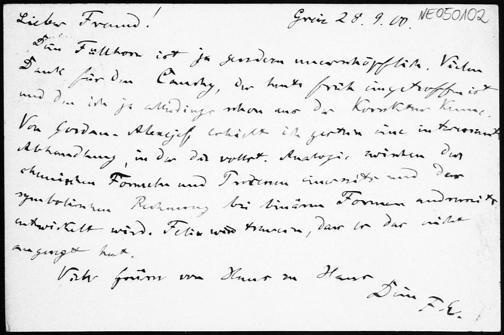 Lieber Freund! Greiz 28.9.00. NE050102
Dein Füllhorn ist ja geradezu unerschöpflich. Vielen
Dank für den Cauchy, der heute früh eingetroffen ist
und den ich ja allerdings schon aus der Korrektur kenne.
Von Gordan-Alexejef erhielt ich gestern eine interessante
Abhandlung, in der die vollst. Analogie zwischen den
chemischen Formeln und Prozessen einerseits und der
symbolischen Rechnung bei binären Formen andrerseits
entwickelt wird. Felix wird trauern, dass er das nicht
angeregt hat.
Viele Grüsse von Haus zu Haus
Dein F. E.